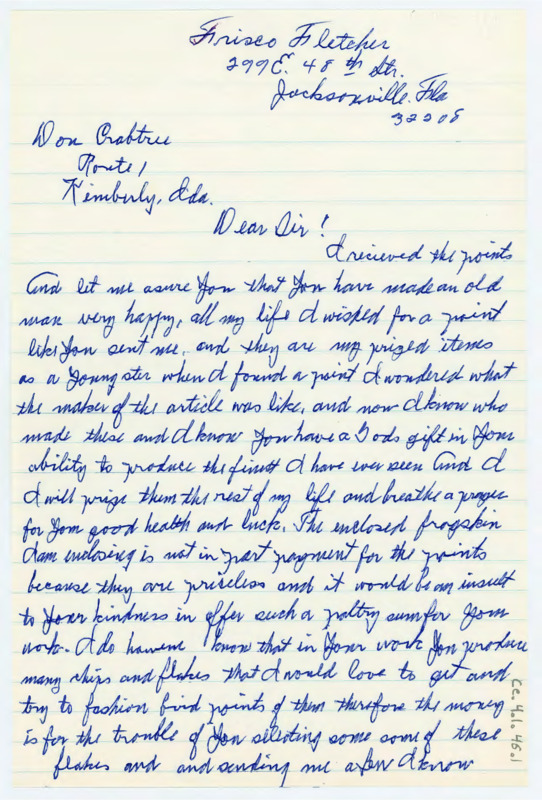 Frisco Fletcher
299 E. 48 th Str.
Jacksonville. Fla
32208
Don Crabtree
Route 1
Kimberly, Ida.
Dear Sir!
I recieved the points
And let me asure you that you have made an old
man very happy, all my life I wished for a point
like you sent me, and they are my prized items
as a youngster when I found a point I wondered what
the maker of the article was like, and now I know who
made these and I know you have a Gods gift in your
ability to produce the finest I have ever seen And I
I will prize them the rest of my life and breathe a prayer
for your good health and luck. The enclosed frogskin
I am enclosing is not in part payment for the points
because they are priceless and it would be an insult
to your kindness in offer such a paltry sum for your
work. I do however know that in your work you produce
many chips and flakes that I would love to get and
try to fashion bird points of them therefore the money
is for the trouble of you selecting some some of these
flakes and and sending me a few I know
Cc. 4.1. 45.1